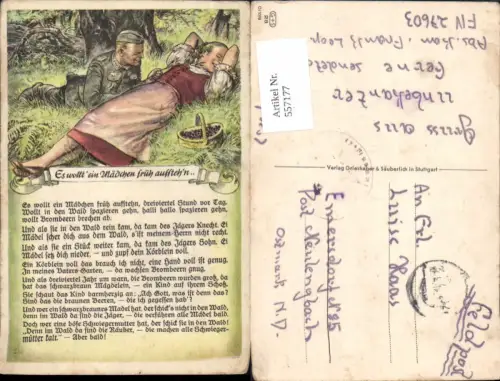 Es wollt' ein Mädchen früh aufsteh'n..
Es wollt ein Mädchen früh aufstehn, dreiviertel Stund vor Tag.
Wollt in den Wald spazieren gehn, halli hallo spazieren gehn,
wollt Brombeern brechen ab.
Und als sie in den Wald rein kam, da kam des Jägers Knecht. Ei
Mädel scher dich aus dem Wald, s'ist meinem Herrn nicht recht.
Und als sie ein Stück weiter kam, da kam des Jägers Sohn. Ei
Mädel setz dich nieder, – und zupf dein Körblein voll.
Ein Körblein voll das brauch ich nicht, eine Hand voll ist genug.
In meines Vaters Garten, – da wachsen Brombeern genug.
Und als dreiviertel Jahr um war, die Brombeern wurden groß, da
hat das schwarzbraun Mägdelein, – ein Kind auf ihrem Schoß.
Sie schaut das Kind barmherzig an: „Ach Gott, was ist denn das!
Sind das die braunen Beeren, – die ich gegessen hab'?
Und wer ein schwarzbraunes Mädel hat, der schick's nicht in den Wald,
denn im Wald da sind die Jäger, – die verführen alle Mädel bald.
Doch wer eine böse Schwiegermutter hat, der schick sie in den Wald!
„Denn im Wald da sind die Räuber, – die machen alle Schwieger-
mütter kalt." – Aber bald!
Artikel Nr.
557177
FN 27603
sendet
unbekannter
Gruss aus
Verlag Grieshaber & Säuberlich in Stuttgart
An Frl.
Luise
Feldpost
Post Neulengbach
Ostmark N.D.